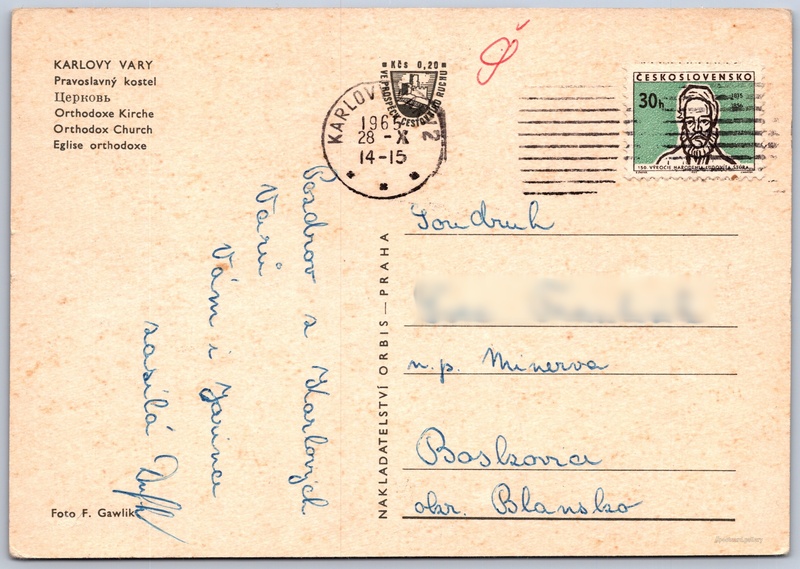 KARLOVY VARY
Pravoslavný kostel
Церковь
Orthodoxe Kirche
Orthodox Church
Eglise orthodoxe
Kčs 0,20
VE PROSPĚCH CESTOVNÍHO RUCHU
KARLOVY VARY 2
1965
28 -X
14-15
ČESKOSLOVENSKO
30h
150. VÝROČIE NARODENIA ĽUDOVÍTA ŠTÚRA
Pozdrov z Karlových
Varů
Vám i Jarince
zasílá
NAKLADATELSTVÍ ORBIS — PRAHA
Soudruh
n.p. Minerva
Boskovice
okr. Blansko
Foto F. Gawlik